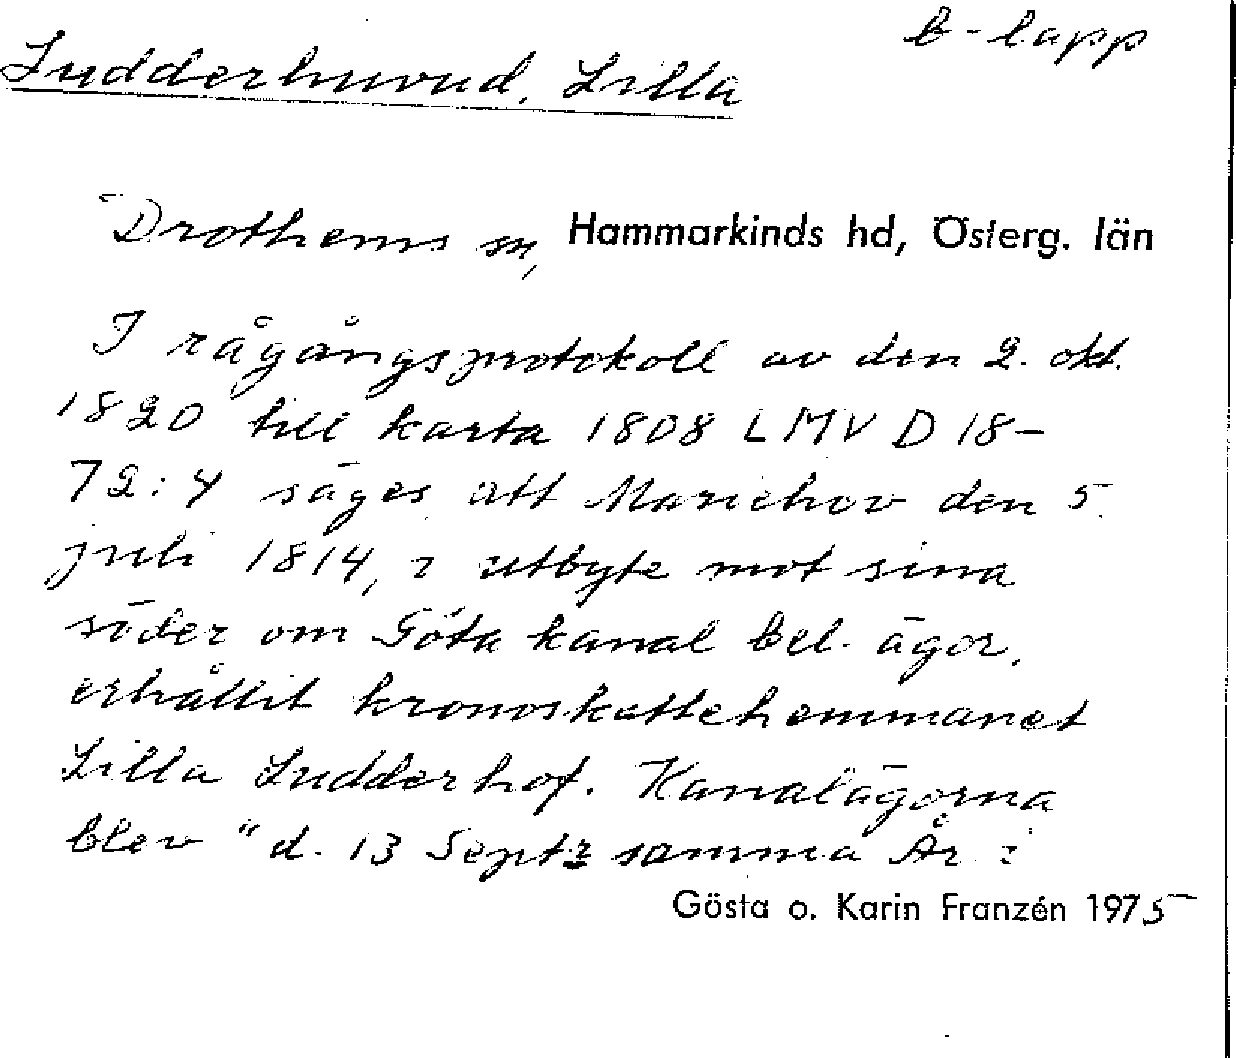 b-lapp
Ludderhuvud, Lilla
Drothems sn, Hammarkinds hd, Österg. län
I rågångsprotokoll av den 2. okt.
1820 till karta 1808 LMV D 18-
72:4 säges att Mariehov den 5.
juli 1814, i utbyte mot sina
söder om Göta kanal bel. ägor,
erhållit kronoskattehemmanet
Lilla Ludderhof. Kanalägorna
blev "d. 13 Septr samma År i
Gösta o. Karin Franzén 1975